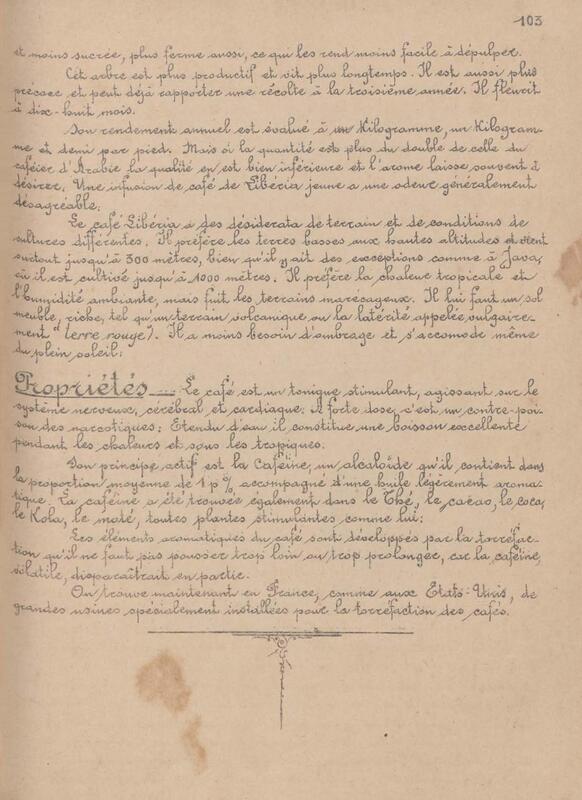 103
et moins sucrée, plus ferme aussi, ce qui les rend moins facile à dépulper.
Cet arbre est plus productif et vit plus longtemps. Il est aussi plus
précoce et peut déjà rapporter une récolte à la troisième année. Il fleurit
à dix-huit mois.
Son rendement annuel est évalué à un Kilogramme, un Kilogram-
me et demi par pied. Mais si la quantité est plus du double de celle du
caféier d'Arabie la qualité en est bien inférieure et l'arome laisse souvent à
désirer. Une infusion de café de Libéria jeune a une odeur généralement
désagréable.
Le café Libéria a des désiderata de terrain et de conditions de
cultures différentes. Il préfère les terres basses aux hautes altitudes et vient
surtout jusqu'à 300 mètres, bien qu'il y ait des exceptions comme à Java,
où il est cultivé jusqu'à 1000 mètres. Il préfère la chaleur tropicale et
l'humidité ambiante, mais fuit les terrains marecageux. Il lui faut un sol
meuble, riche, tel qu'un terrain volcanique ou la latérité appelée vulgaire-
ment "terre rouge"). Il a moins besoin d'ombrage et s'accomode même
du plein soleil.
Propriétés — Le café est un tonique stimulant, agissant sur le
système nerveux, cérébral et cardiaque. A forte dose, c'est un contre-poi-
son des narcotiques; Etendu d'eau il constitue une boisson excellente
pendant les chaleurs et sous les tropiques.
Son principe actif est la Caféine, un alcaloïde qu'il contient dans
la proportion moyenne de 1 p % accompagné d'une huile légèrement aroma-
tique. La caféine a été trouvée également dans le Thé, le cacao, le coca,
le Kola, le maté, toutes plantes stimulantes comme lui.
Les éléments aromatiques du café sont développés par la torréfac-
tion qu'il ne faut pas pousser trop loin ou trop prolonger, car la caféine,
volatile, disparaîtrait en partie.
On trouve maintenant en France, comme aux Etats-Unis, de
grandes usines spécialement installées pour la torréfaction des cafés.